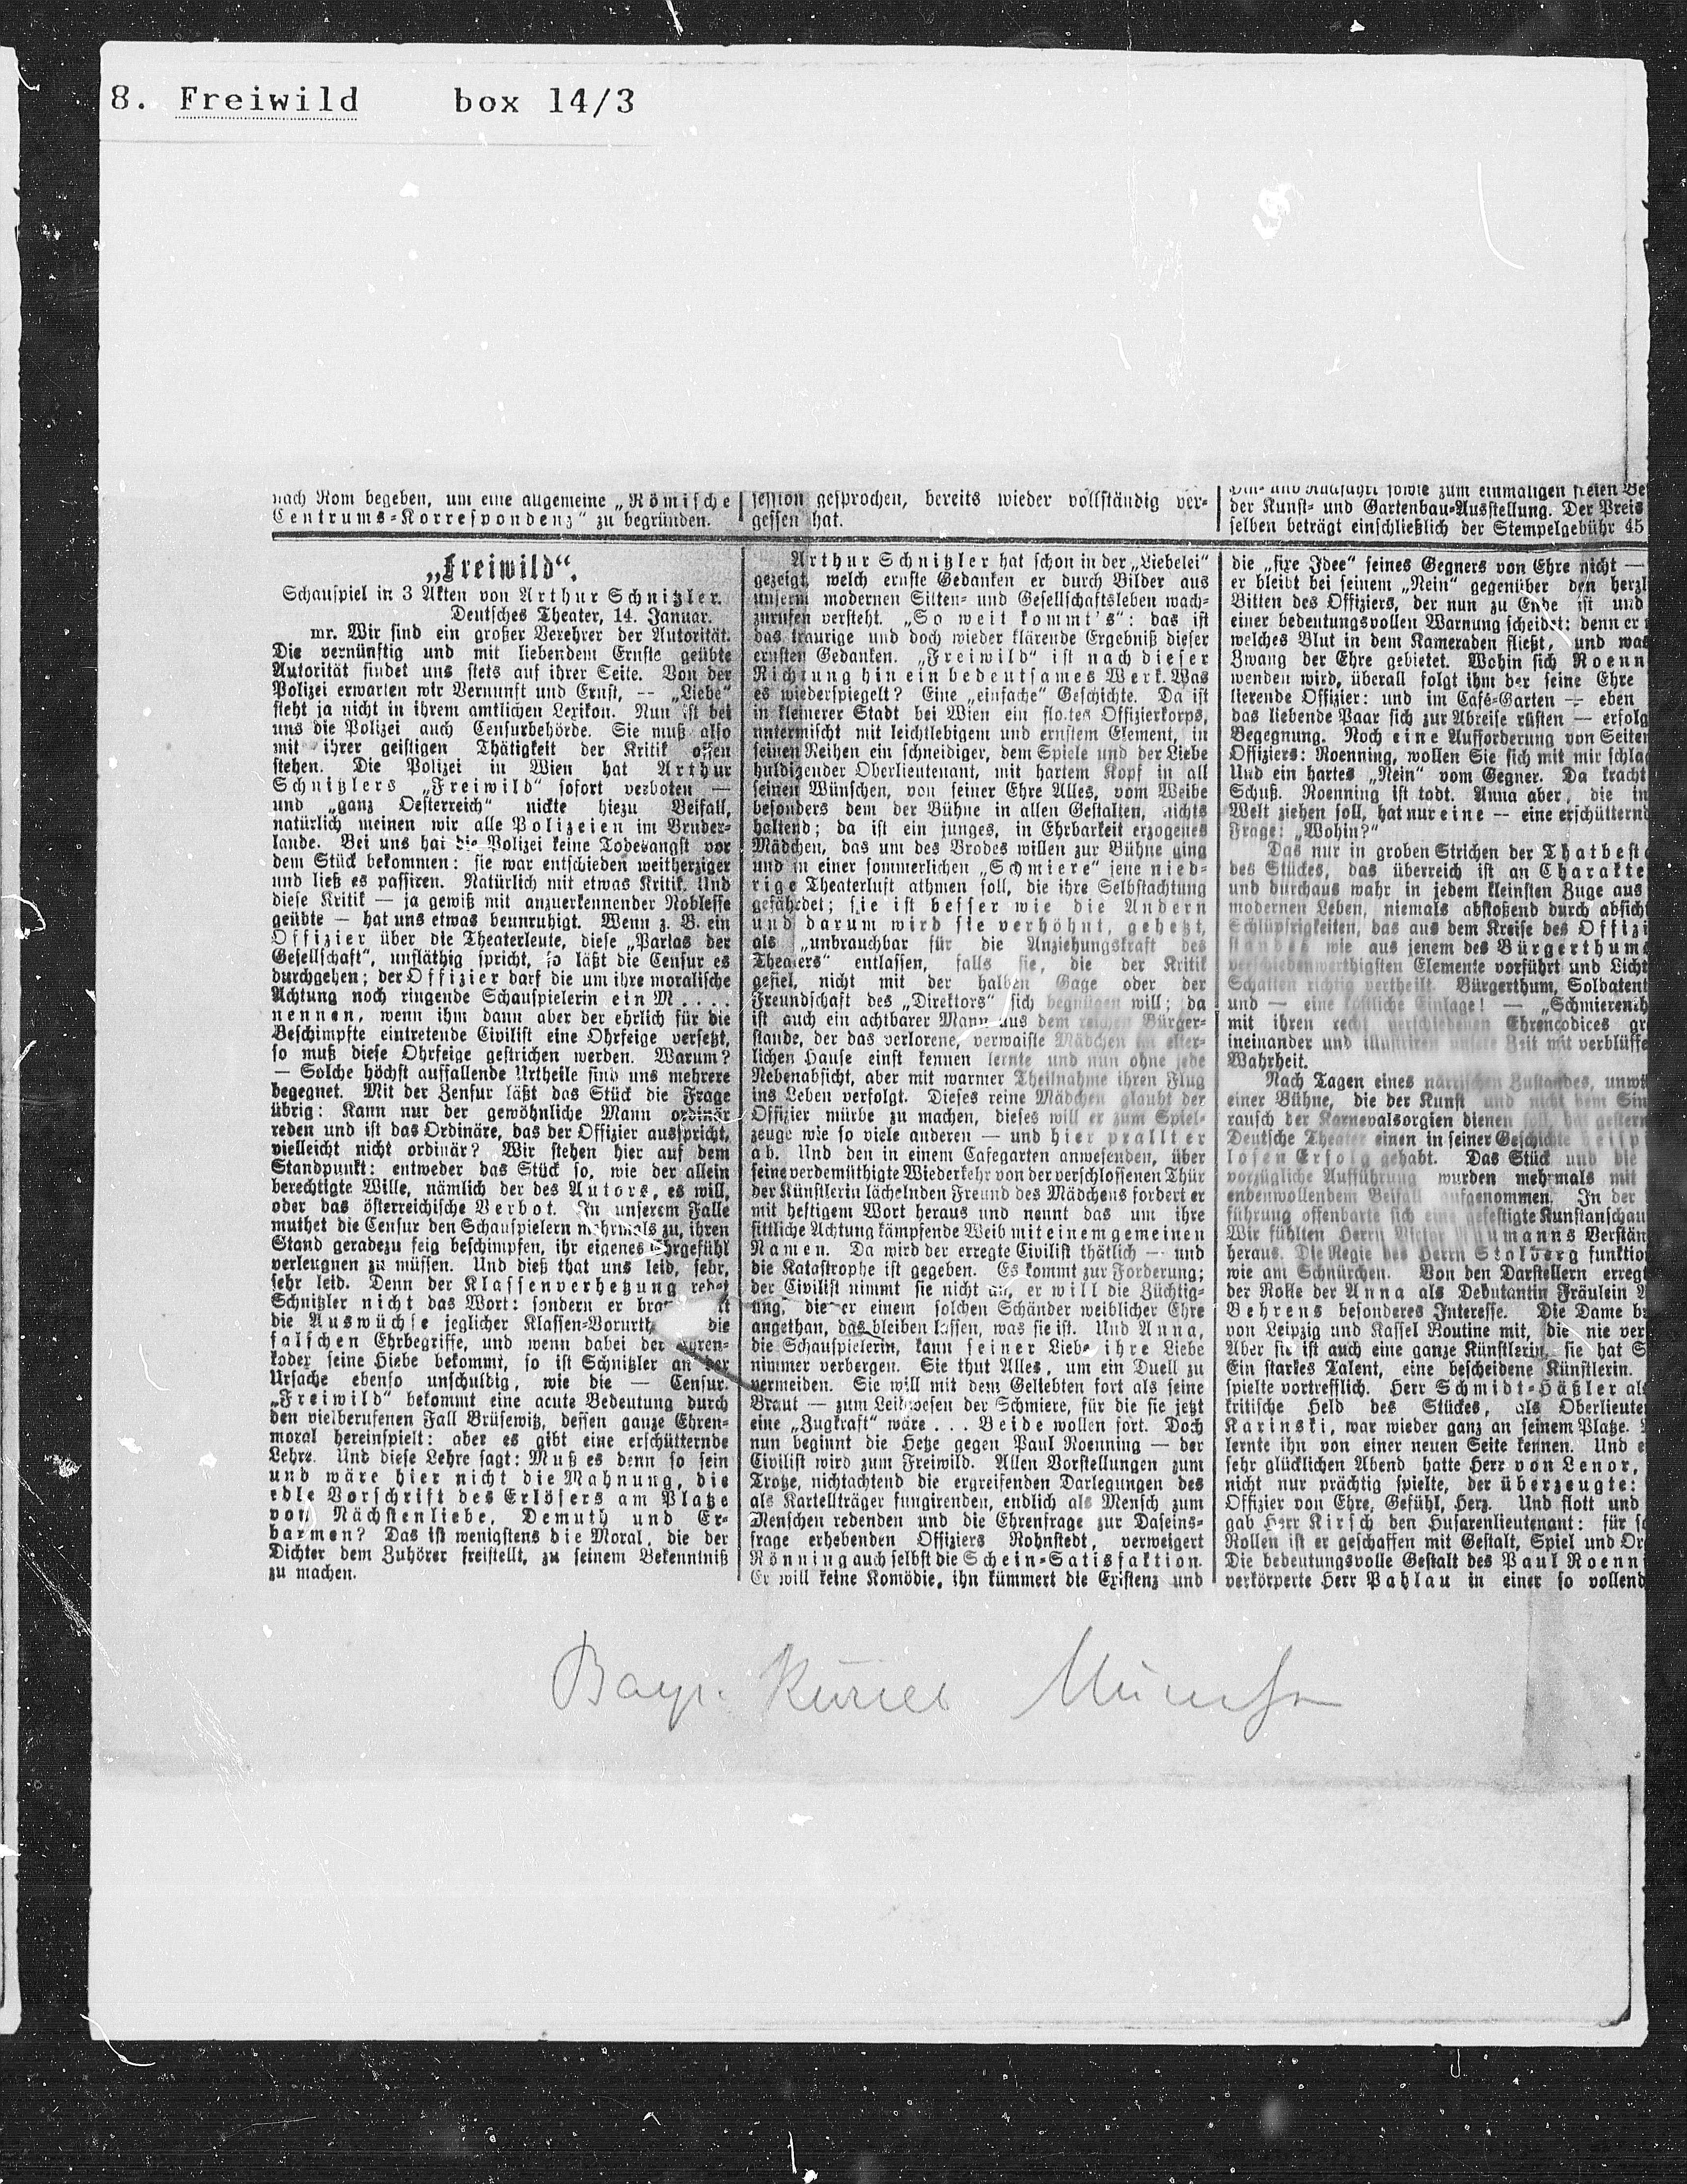 8. Freiwild box 14/3
nach Rom begeben, um eine allgemeine „Römische
Centrums-Korrespondenz" zu begründen.
„Freiwild".
Schauspiel in 3 Akten von Arthur Schnitzler.
Deutsches Theater, 14. Januar.
mr. Wir sind ein großer Verehrer der Autorität.
Die vernünftig und mit liebendem Ernste geübte
Autorität findet uns stets auf ihrer Seite. Von der
Polizei erwarten wir Vernunft und Ernst, -- „Liebe"
steht ja nicht in ihrem amtlichen Lexikon. Nun ist bei
uns die Polizei auch Censurbehörde. Sie muß also
mit ihrer geistigen Thätigkeit der Kritik offen
stehen. Die Polizei in Wien hat Arthur
Schnitzlers „Freiwild" sofort verboten —
und „ganz Oesterreich" nickte hiezu Beifall,
natürlich meinen wir alle Polizeien im Bruder-
lande. Bei uns hat die Polizei keine Todesangst vor
dem Stück bekommen: sie war entschieden weitherziger
und ließ es passiren. Natürlich mit etwas Kritik. Und
diese Kritik — ja gewiß mit anzuerkennender Noblesse
geübte — hat uns etwas beunruhigt. Wenn z. B. ein
Offizier über die Theaterleute, diese „Parias der
Gesellschaft", unfläthig spricht, so läßt die Censur es
durchgehen; der Offizier darf die um ihre moralische
Achtung noch ringende Schauspielerin ein M....
nennen, wenn ihm dann aber der ehrlich für die
Beschimpfte eintretende Civilist eine Ohrfeige versetzt,
so muß diese Ohrfeige gestrichen werden. Warum?
— Solche höchst auffallende Urtheile sind uns mehrere
begegnet. Mit der Zensur läßt das Stück die Frage
übrig: Kann nur der gewöhnliche Mann ordinär
reden und ist das Ordinäre, das der Offizier ausspricht,
vielleicht nicht ordinär? Wir stehen hier auf dem
Standpunkt: entweder das Stück so, wie der allein
berechtigte Wille, nämlich der des Autors, es will,
oder das österreichische Verbot. In unserem Falle
muthet die Censur den Schauspielern mehrmals zu, ihren
Stand geradezu feig beschimpfen, ihr eigenes Ehrgefühl
verleugnen zu müssen. Und dieß that uns leid, sehr,
sehr leid. Denn der Klassenverhetzung redet
Schnitzler nicht das Wort: sondern er
die Auswüchse jeglicher die
falschen Ehrbegriffe, und wenn dabei der Ehren-
kodex seine Hiebe bekommt, so ist Schnitzler an der
Ursache ebenso unschuldig, wie die — Censur.
„Freiwild" bekommt eine acute Bedeutung durch
den vielberufenen Fall Brüsewitz, dessen ganze Ehren-
moral hereinspielt: aber es gibt eine erschütternde
Lehre. Und diese Lehre sagt: Muß es denn so sein
und wäre hier nicht die Mahnung, die
edle Vorschrift des Erlösers am Platze
von Nächstenliebe, Demuth und Er-
barmen? Das ist wenigstens die Moral, die der
Dichter dem Zuhörer freistellt, zu seinem Bekenntniß
zu machen.
session gesprochen, bereits wieder vollständig ver-
gessen hat.
Arthur Schnitzler hat schon in der „Liebelei"
gezeigt, welch ernste Gedanken er durch Bilder aus
unserm modernen Sitten- und Gesellschaftsleben wach-
zurufen versteht. „So weit kommt's": das ist
das traurige und doch wieder klärende Ergebniß dieser
ernsten Gedanken. „Freiwild" ist nach dieser
Richtung hin ein bedeutsames Werk. Was
es wiederspiegelt? Eine „einfache" Geschichte. Da ist
in kleinerer Stadt bei Wien ein flottes Offizierkorps,
untermischt mit leichtlebigem und ernstem Element, in
seinen Reihen ein schneidiger, dem Spiele und der Liebe
huldigender Oberlieutenant, mit hartem Kopf in all
seinen Wünschen, von seiner Ehre Alles, vom Weibe
besonders dem der Bühne in allen Gestalten, nichts
haltend; da ist ein junges, in Ehrbarkeit erzogenes
Mädchen, das um des Brodes willen zur Bühne ging
und in einer sommerlichen „Schmiere" jene nied-
rige Theaterluft athmen soll, die ihre Selbstachtung
gefährdet; sie ist besser wie die Andern
und darum wird sie verhöhnt, gehetzt,
als „unbrauchbar für die Anziehungskraft des
Theaters" entlassen, falls sie, die der Kritik
gefiel, nicht mit der halben Gage oder der
Freundschaft des „Direktors" sich begnügen will; da
ist auch ein achtbarer Mann aus dem reichen Bürger-
stande, der das verlorene, verwaiste Mädchen im elter-
lichen Hause einst kennen lernte und nun ohne jede
Nebenabsicht, aber mit warmer Theilnahme ihren Flug
ins Leben verfolgt. Dieses reine Mädchen glaubt der
Offizier mürbe zu machen, dieses will er zum Spiel-
zeuge wie so viele anderen — und hier prallt er
ab. Und den in einem Cafegarten anwesenden, über
seine verdemüthigte Wiederkehr von der verschlossenen Thür
der Künstlerin lächelnden Freund des Mädchens fordert er
mit heftigem Wort heraus und nennt das um ihre
sittliche Achtung kämpfende Weib mit einem gemeinen
Namen. Da wird der erregte Civilist thätlich — und
die Katastrophe ist gegeben. Es kommt zur Forderung;
der Civilist nimmt sie nicht an, er will die Züchtig-
ung, die er einem solchen Schänder weiblicher Ehre
angethan, das bleiben lassen, was sie ist. Und Anna,
die Schauspielerin, kann seiner Liebe ihre Liebe
nimmer verbergen. Sie thut Alles, um ein Duell zu
vermeiden. Sie will mit dem Geliebten fort als seine
Braut — zum Leidwesen der Schmiere, für die sie jetzt
eine „Zugkraft" wäre... Beide wollen fort. Doch
nun beginnt die Hetze gegen Paul Roenning — der
Civilist wird zum Freiwild. Allen Vorstellungen zum
Trotze, nichtachtend die ergreifenden Darlegungen des
als Kartellträger fungirenden, endlich als Mensch zum
Menschen redenden und die Ehrenfrage zur Daseins-
frage erhebenden Offiziers Rohnstedt, verweigert
Rönning auch selbst die Schein-Satisfaktion.
Er will keine Komödie, ihn kümmert die Existenz und
Hin- und Rückfahrt sowie zum einmaligen freien Be
der Kunst- und Gartenbau-Ausstellung. Der Preis
selben beträgt einschließlich der Stempelgebühr 45
die „fixe Idee" seines Gegners von Ehre nicht —
er bleibt bei seinem „Nein" gegenüber den herzl
Bitten des Offiziers, der nun zu Ende ist und
einer bedeutungsvollen Warnung scheidet: denn er
welches Blut in dem Kameraden fließt, und was
Zwang der Ehre gebietet. Wohin sich Roenn
wenden wird, überall folgt ihm der seine Ehre
lierende Offizier: und im Café-Garten — eben
das liebende Paar sich zur Abreise rüsten — erfolg
Begegnung. Noch eine Aufforderung von Seiten
Offiziers: Roenning, wollen Sie sich mit mir schlag
Und ein hartes „Nein" vom Gegner. Da kracht
Schuß. Roenning ist todt. Anna aber, die in
Welt ziehen soll, hat nur eine -- eine erschütternd
Frage: „Wohin?"
Das nur in groben Strichen der Thatbest
des Stückes, das überreich ist an Charakte
und durchaus wahr in jedem kleinsten Zuge aus
modernen Leben, niemals abstoßend durch absich
Schlüpfrigkeiten, das aus dem Kreise des Offizi
standes wie aus jenem des Bürgerthums
verschiedenwerthigsten Elemente vorführt und Licht
Schatten richtig vertheilt. Bürgerthum, Soldatent
und — eine köstliche Einlage! — „Schmierenth
mit ihren recht verschiedenen Ehrencodices gr
ineinander und illustriren unsere Zeit mit verblüffe
Wahrheit.
Nach Tagen eines närrischen Zustandes, unwü
einer Bühne, die der Kunst und nicht dem Sin
rausch der Karnevalsorgien dienen soll, hat gestern
Deutsche Theater einen in seiner Geschichte beisp
losen Erfolg gehabt. Das Stück und die
vorzügliche Aufführung wurden mehrmals mit
endenwollendem Beifall aufgenommen. In der
führung offenbarte sich eine gefestigte Kunstanschau
Wir fühlten Herrn Victor Naumanns Verstän
heraus. Die Regie des Herrn Stolberg funktio
wie am Schnürchen. Von den Darstellern erregt
der Rolle der Anna als Debutantin Fräulein
Behrens besonderes Interesse. Die Dame b
von Leipzig und Kassel Routine mit, die nie ver
Aber sie ist auch eine ganze Künstlerin, sie hat S
Ein starkes Talent, eine bescheidene Künstlerin.
spielte vortrefflich. Herr Schmidt-Häßler als
kritische Held des Stückes, als Oberlieuten
Karinski, war wieder ganz an seinem Platze.
lernte ihn von einer neuen Seite kennen. Und e
sehr glücklichen Abend hatte Herr von Lenor,
nicht nur prächtig spielte, der überzeugte:
Offizier von Ehre, Gefühl, Herz. Und flott und
gab Herr Kirsch den Husarenlieutenant: für so
Rollen ist er geschaffen mit Gestalt, Spiel und Or
Die bedeutungsvolle Gestalt des Paul Roenni
verkörperte Herr Pahlau in einer so vollend
Bayr. Kurier München